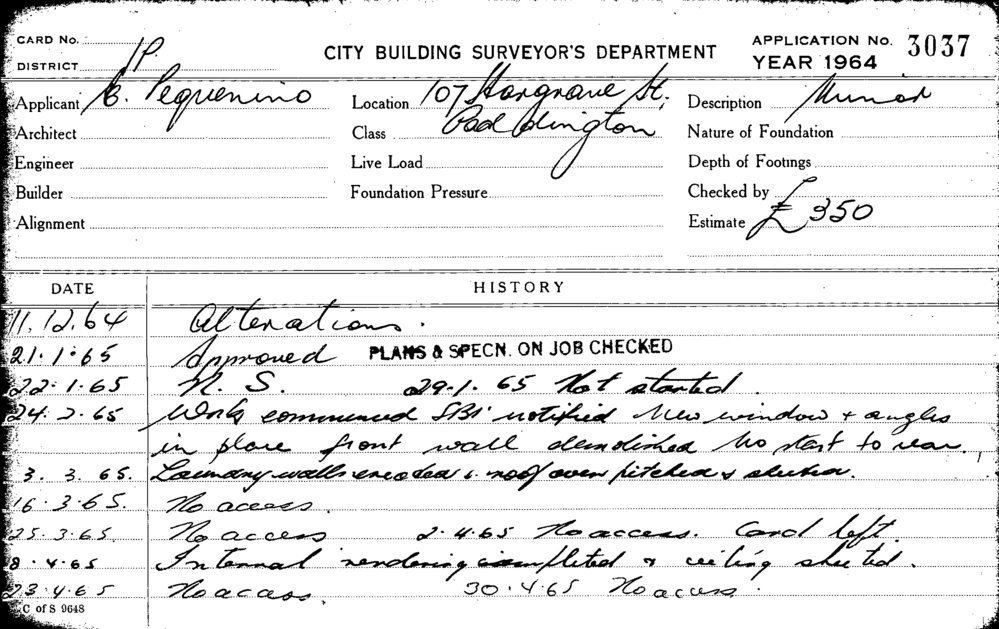 CARD No.
CITY BUILDING SURVEYOR'S DEPARTMENT
APPLICATION No. 3037
DISTRICT P.
YEAR 1964
Applicant C. Pequenino
Location 107 Hargrave St,
Description Minor
Architect
Class Paddington
Nature of Foundation
Engineer
Live Load
Depth of Footings
Builder
Foundation Pressure
Checked by
Alignment
Estimate £350
DATE HISTORY
11.12.64 Alterations.
21.1.65 Approved PLANS & SPECN. ON JOB CHECKED
22.1.65 N. S. 29.1.65 Not started.
24.2.65 Work commenced notified New window + angles
in place front wall demolished No start to rear.
3.3.65. Laundry walls erected & roof over pitched & sheeted.
16.3.65. No access.
25.3.65. No access 2.4.65 No access. Card left.
8.4.65 Internal rendering completed & ceiling sheeted.
23.4.65 No access. 30.4.65 No access.
C of S 9648